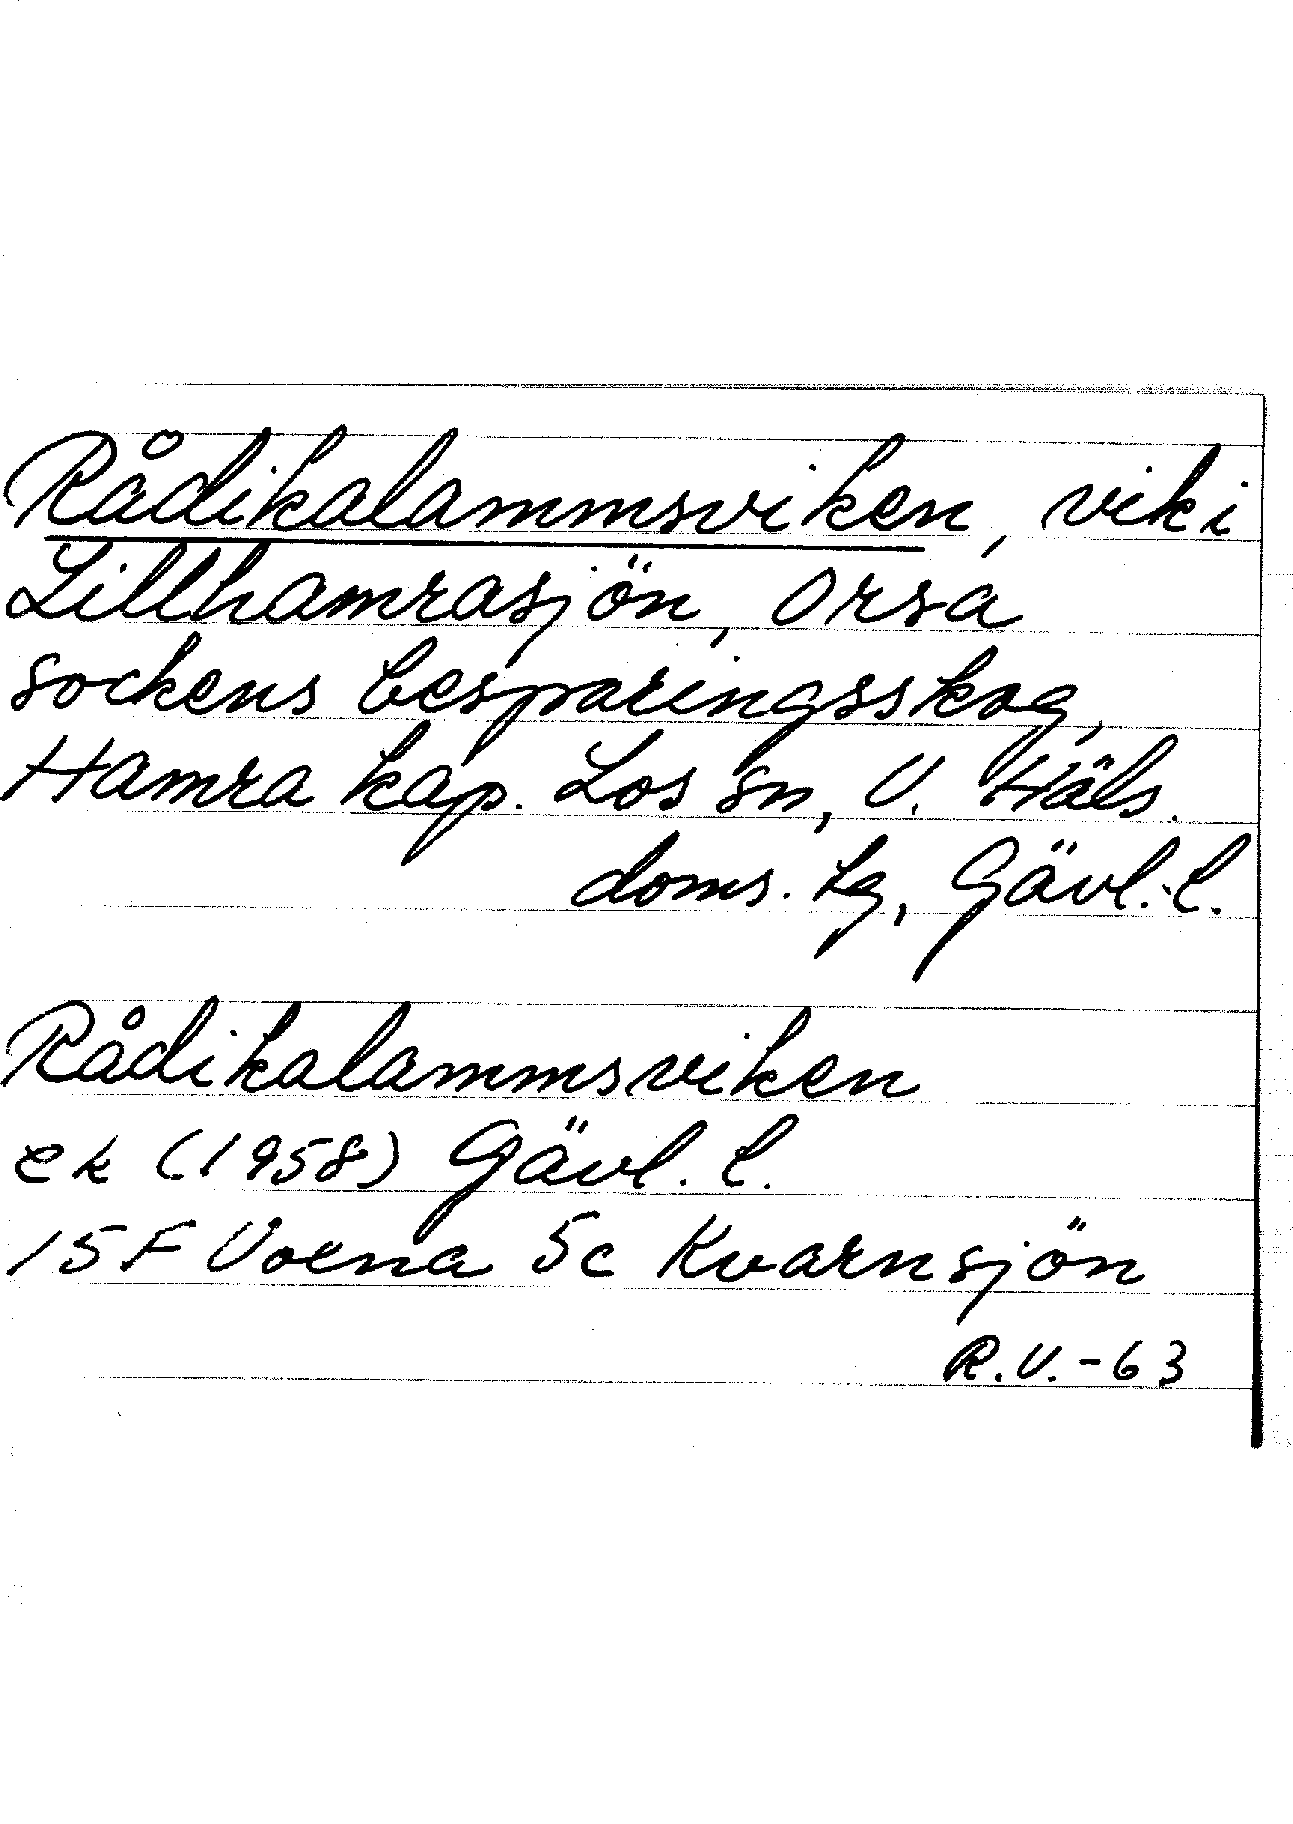 Rådikalammsviken, vik i
Lillhamrasjön, Orsa
sockens besparingsskog,
Hamra kap. Los sn, V. Häls.
doms. tg, Gävl. l.
Rådikalammsviken
ek (1958) Gävl. l.
15 F Voxna 5c Kvarnsjön
R.V.-63